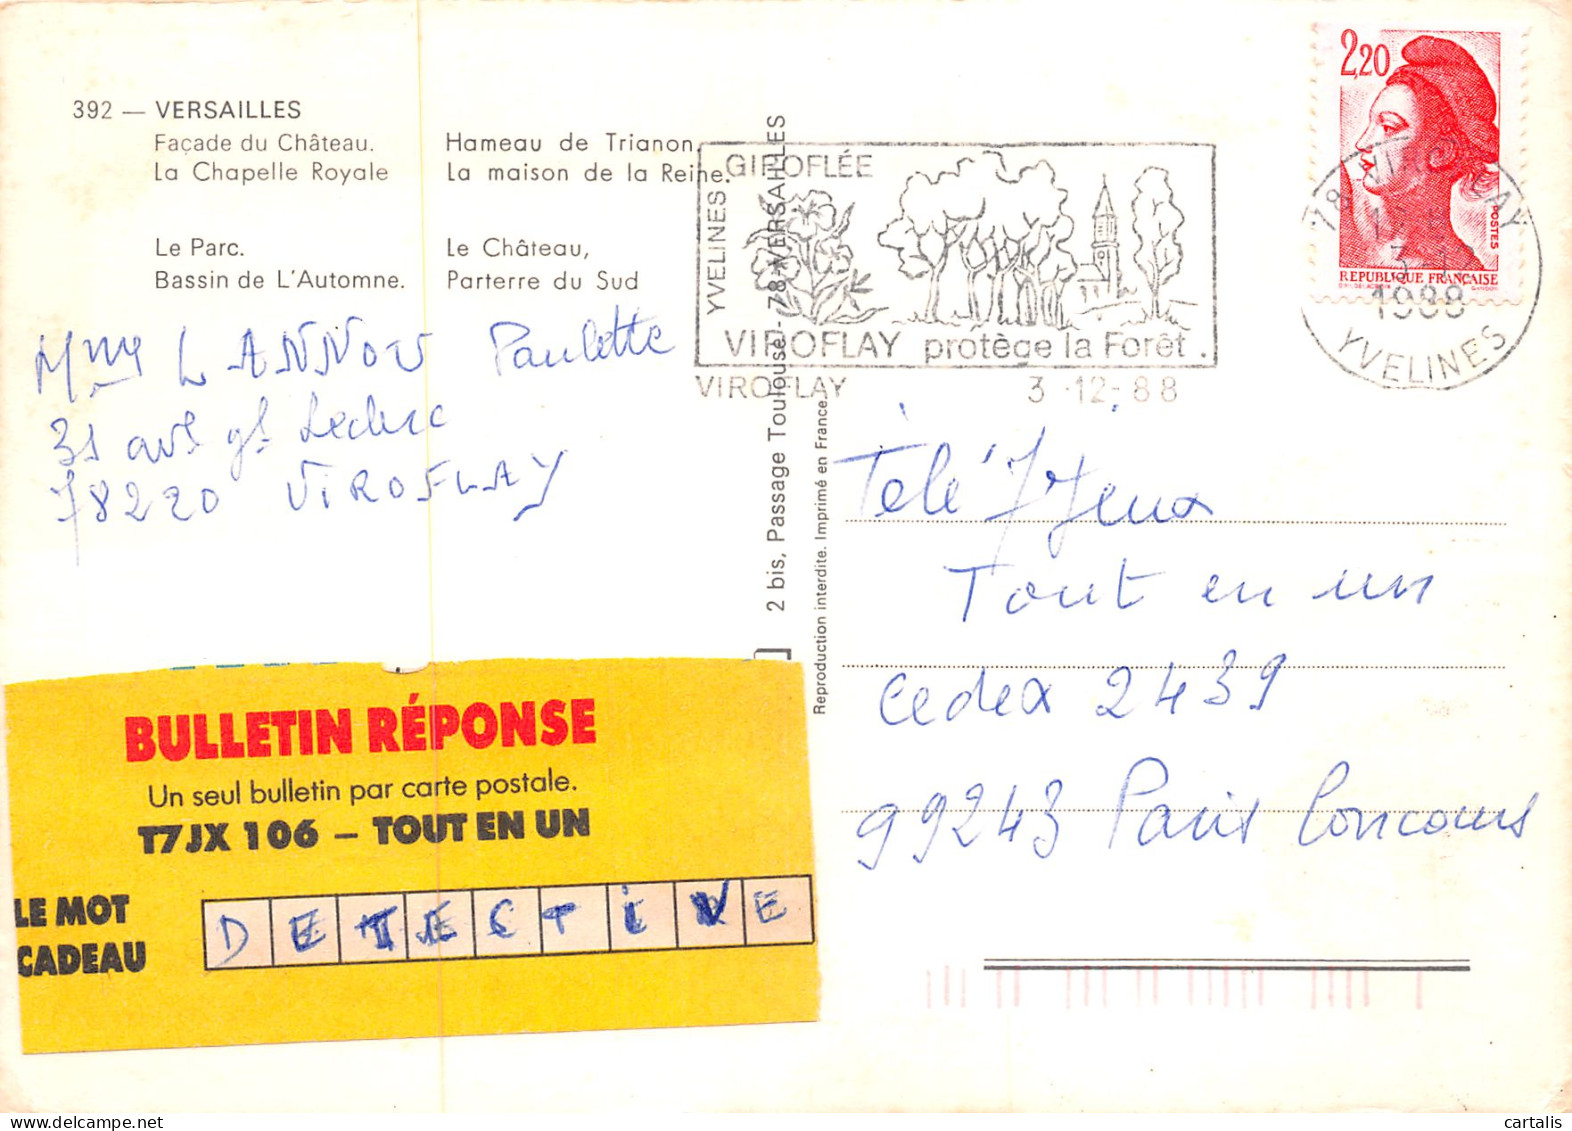 392 — VERSAILLES
Façade du Château.
La Chapelle Royale
Hameau de Trianon.
La maison de la Reine.
Le Parc.
Bassin de L'Automne.
Le Château,
Parterre du Sud
Mme LANNOU Paulette
31 ave gl Leclerc
78220 VIROFLAY
BULLETIN RÉPONSE
Un seul bulletin par carte postale.
T7JX 106 – TOUT EN UN
LE MOT
CADEAU
DETECTIVE
2 bis, Passage Toulouse - 78 VERSAILLES
Reproduction interdite. Imprimé en France.
YVELINES
GIROFLÉE
VIROFLAY protège la Forêt.
VIROFLAY 3-12-88
2,20
POSTES
REPUBLIQUE FRANÇAISE
78 VIROFLAY
1988
YVELINES
Télé 7 Jeux
Tout en un
Cedex 2439
99243 Paris Concours
cartalis